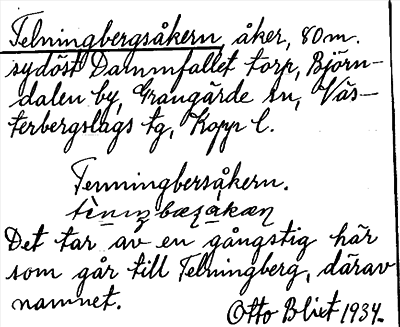 Telningbergsåkern, åker, 80 m.
sydöst Dammfallet torp, Björn-
dalen by, Grangärde sn, Väs-
terbergslags tg, Kopp l.
Tenningbersåkern.
Det tar av en gångstig här
som går till Telningberg, därav
namnet.
Otto Blixt 1934.